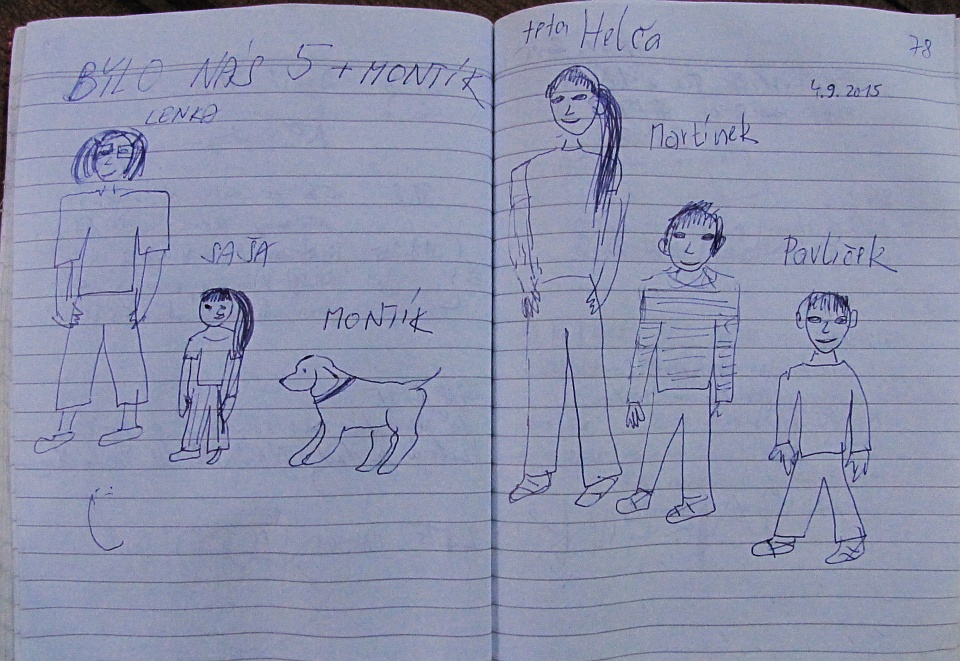 BYLO NÁS 5 + MONTÍK
LENKA
SAŠA
MONTÍK
teta Helča
78
4.9.2015
Martínek
Pavlíček